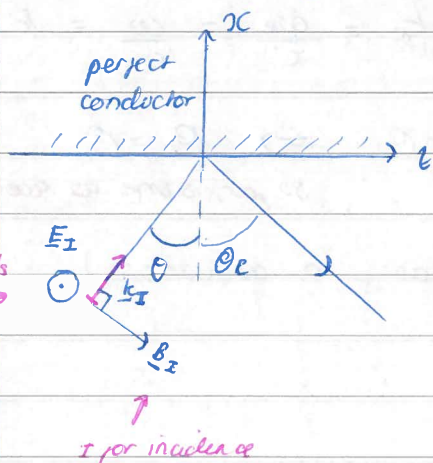 x
perfect
conductor
E_I
θ
θ_R
k_I
B_I
I for incidence